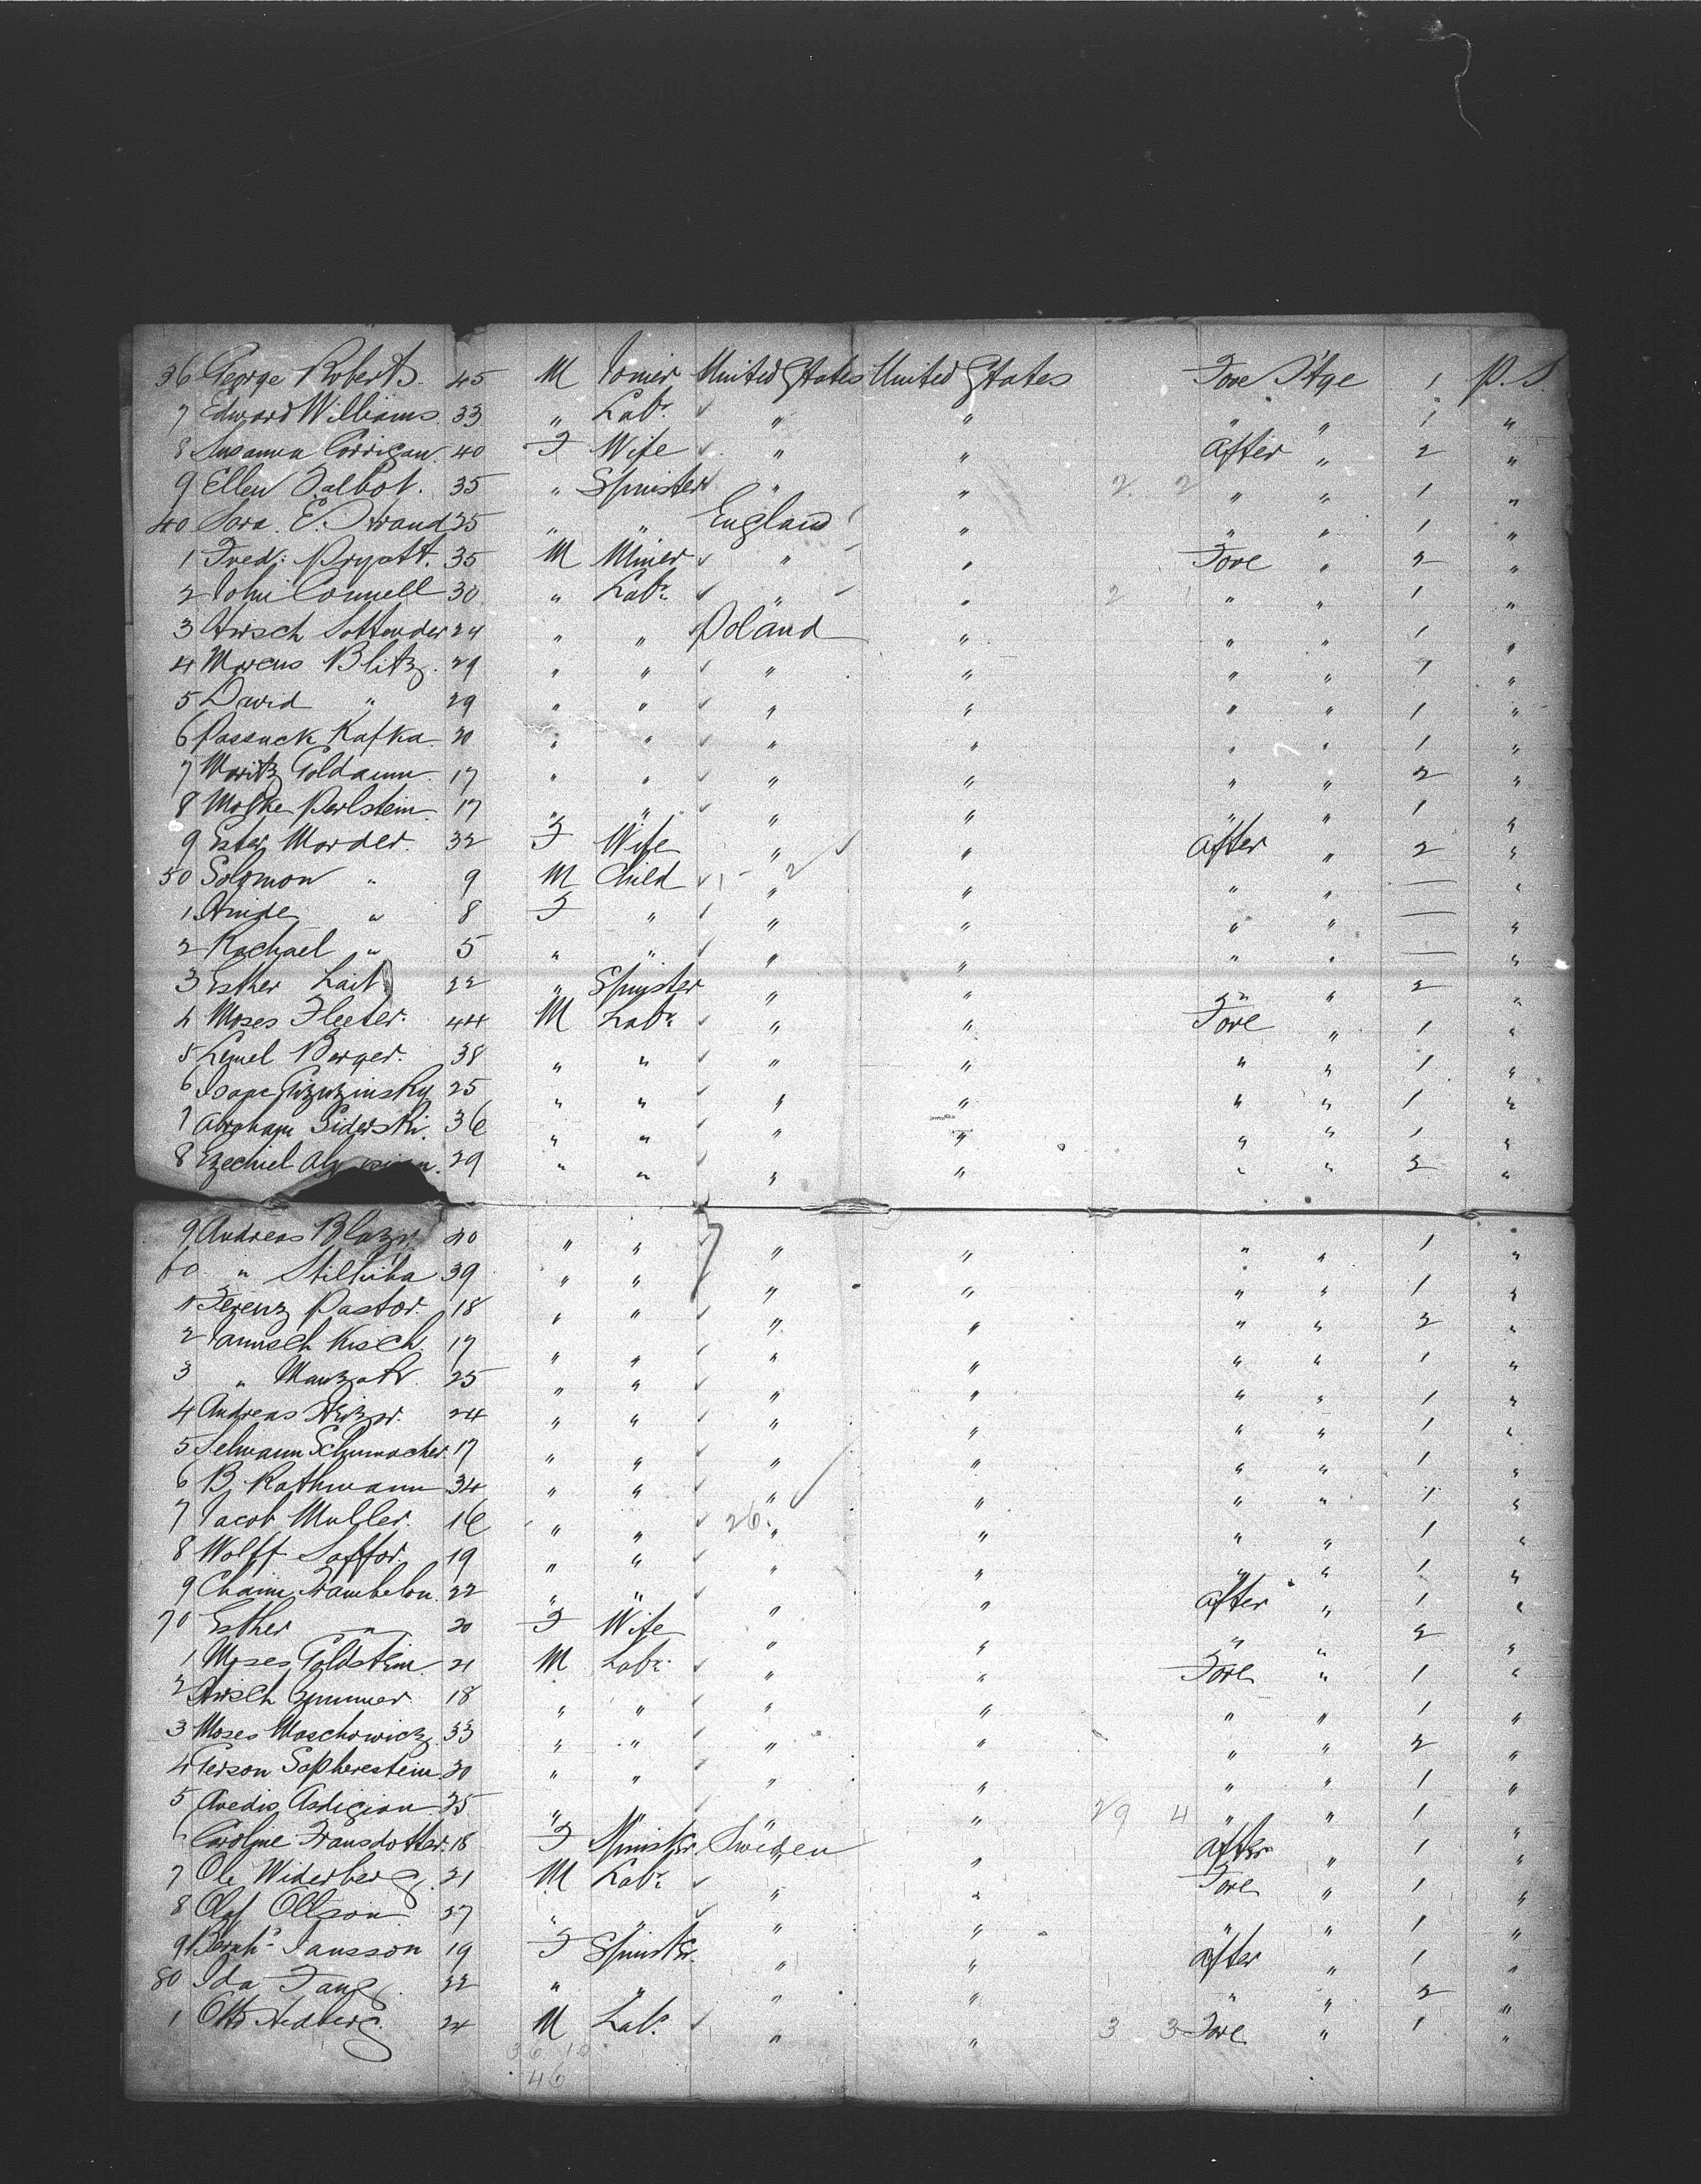 36 George Roberts. 45 M Joiner United States United States Fore St'ge 1 P.S.
7 Edward Williams. 33 " Labr. " " " " 1 "
8 Susanna Corrigan. 40 F Wife " " After " 2 "
9 Ellen Talbot. 35 " Spinster " " 2 2 " " 1 "
40 Sara. E. Strand 25 " " England " " " 1 "
1 Fred: Pryatt. 35 M Miner " " Fore " 2 "
2 John Connell 30 " Labr. " " 2 1 " " 1 "
3 Hirsch 24 " " Poland " " " 1 "
4 Marcus Blitz. 29 " " " " " " 1 "
5 David " 29 " " " " " " 1 "
6 Kafka. 20 " " " " " " 1 "
7 Moritz Goldamm. 17 " " " " " " 2 "
8 Perlstein. 17 " " " " " " 1 "
9 Ester Morder. 32 F Wife " " After " 2 "
50 Solomon " 9 M Child 1 - 2 " " " " — "
1 " 8 F " " " " " — "
2 Rachael " 5 " " " " " " — "
3 Esther Lait 22 " Spinster " " " " 2 "
4 Moses Fleeter. 44 M Labr. " " Fore " 1 "
5 Lemel Berger. 38 " " " " " " 1 "
6 Isaac 25 " " " " " " 1 "
7 Abraham Siderski. 36 " " " " " " 1 "
8 Ezechiel 29 " " " " " " 2 "
9 Andreas 40 " " 7 " " " " 1 "
60 " 39 " " " " " " 1 "
1 Ferenz Pastor. 18 " " " " " " 2 "
2 Kisch. 17 " " " " " " 1 "
3 " 25 " " " " " " 1 "
4 Andreas 24 " " " " " " 1 "
5 Selmann Schumacher. 17 " " " " " " 1 "
6 B. Rothmann 34 " " " " " " 1 "
7 Jacob Muller. 16 " " 26 " " " " 1 "
8 Wolff Saffor. 19 " " " " " " 1 "
9 Chaim 22 " " " " After " 1 "
70 Esther " 20 F Wife " " " " 2 "
1 Moses Goldstein. 21 M Labr. " " Fore " 1 "
2 Hirsch Zimmer. 18 " " " " " " 1 "
3 Moses Moschowicz. 33 " " " " " " 2 "
4 Gerson Sapherestein. 20 " " " " " " 1 "
5 Avedis Asdigian. 25 " " " " 29 4 " " 1 "
6 Caroline Fransdotter. 18 F Spinster Sweden " After " 1 "
7 Ole Widerberg. 21 M Labr. " " Fore " 1 "
8 Olof Ollson 27 " " " " " " 1 "
9 Jansson 19 F Spinster. " " After " 1 "
80 Ida 22 " " " " " " 2 "
1 Otto Hedberg. 24 M Labr. " " 3 3 Fore " 1 "
36 10
46